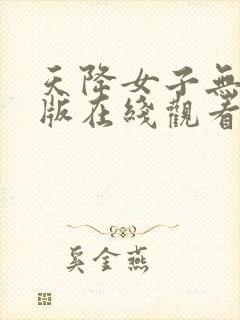 天降女子無
版在綫觀看
奚金燕